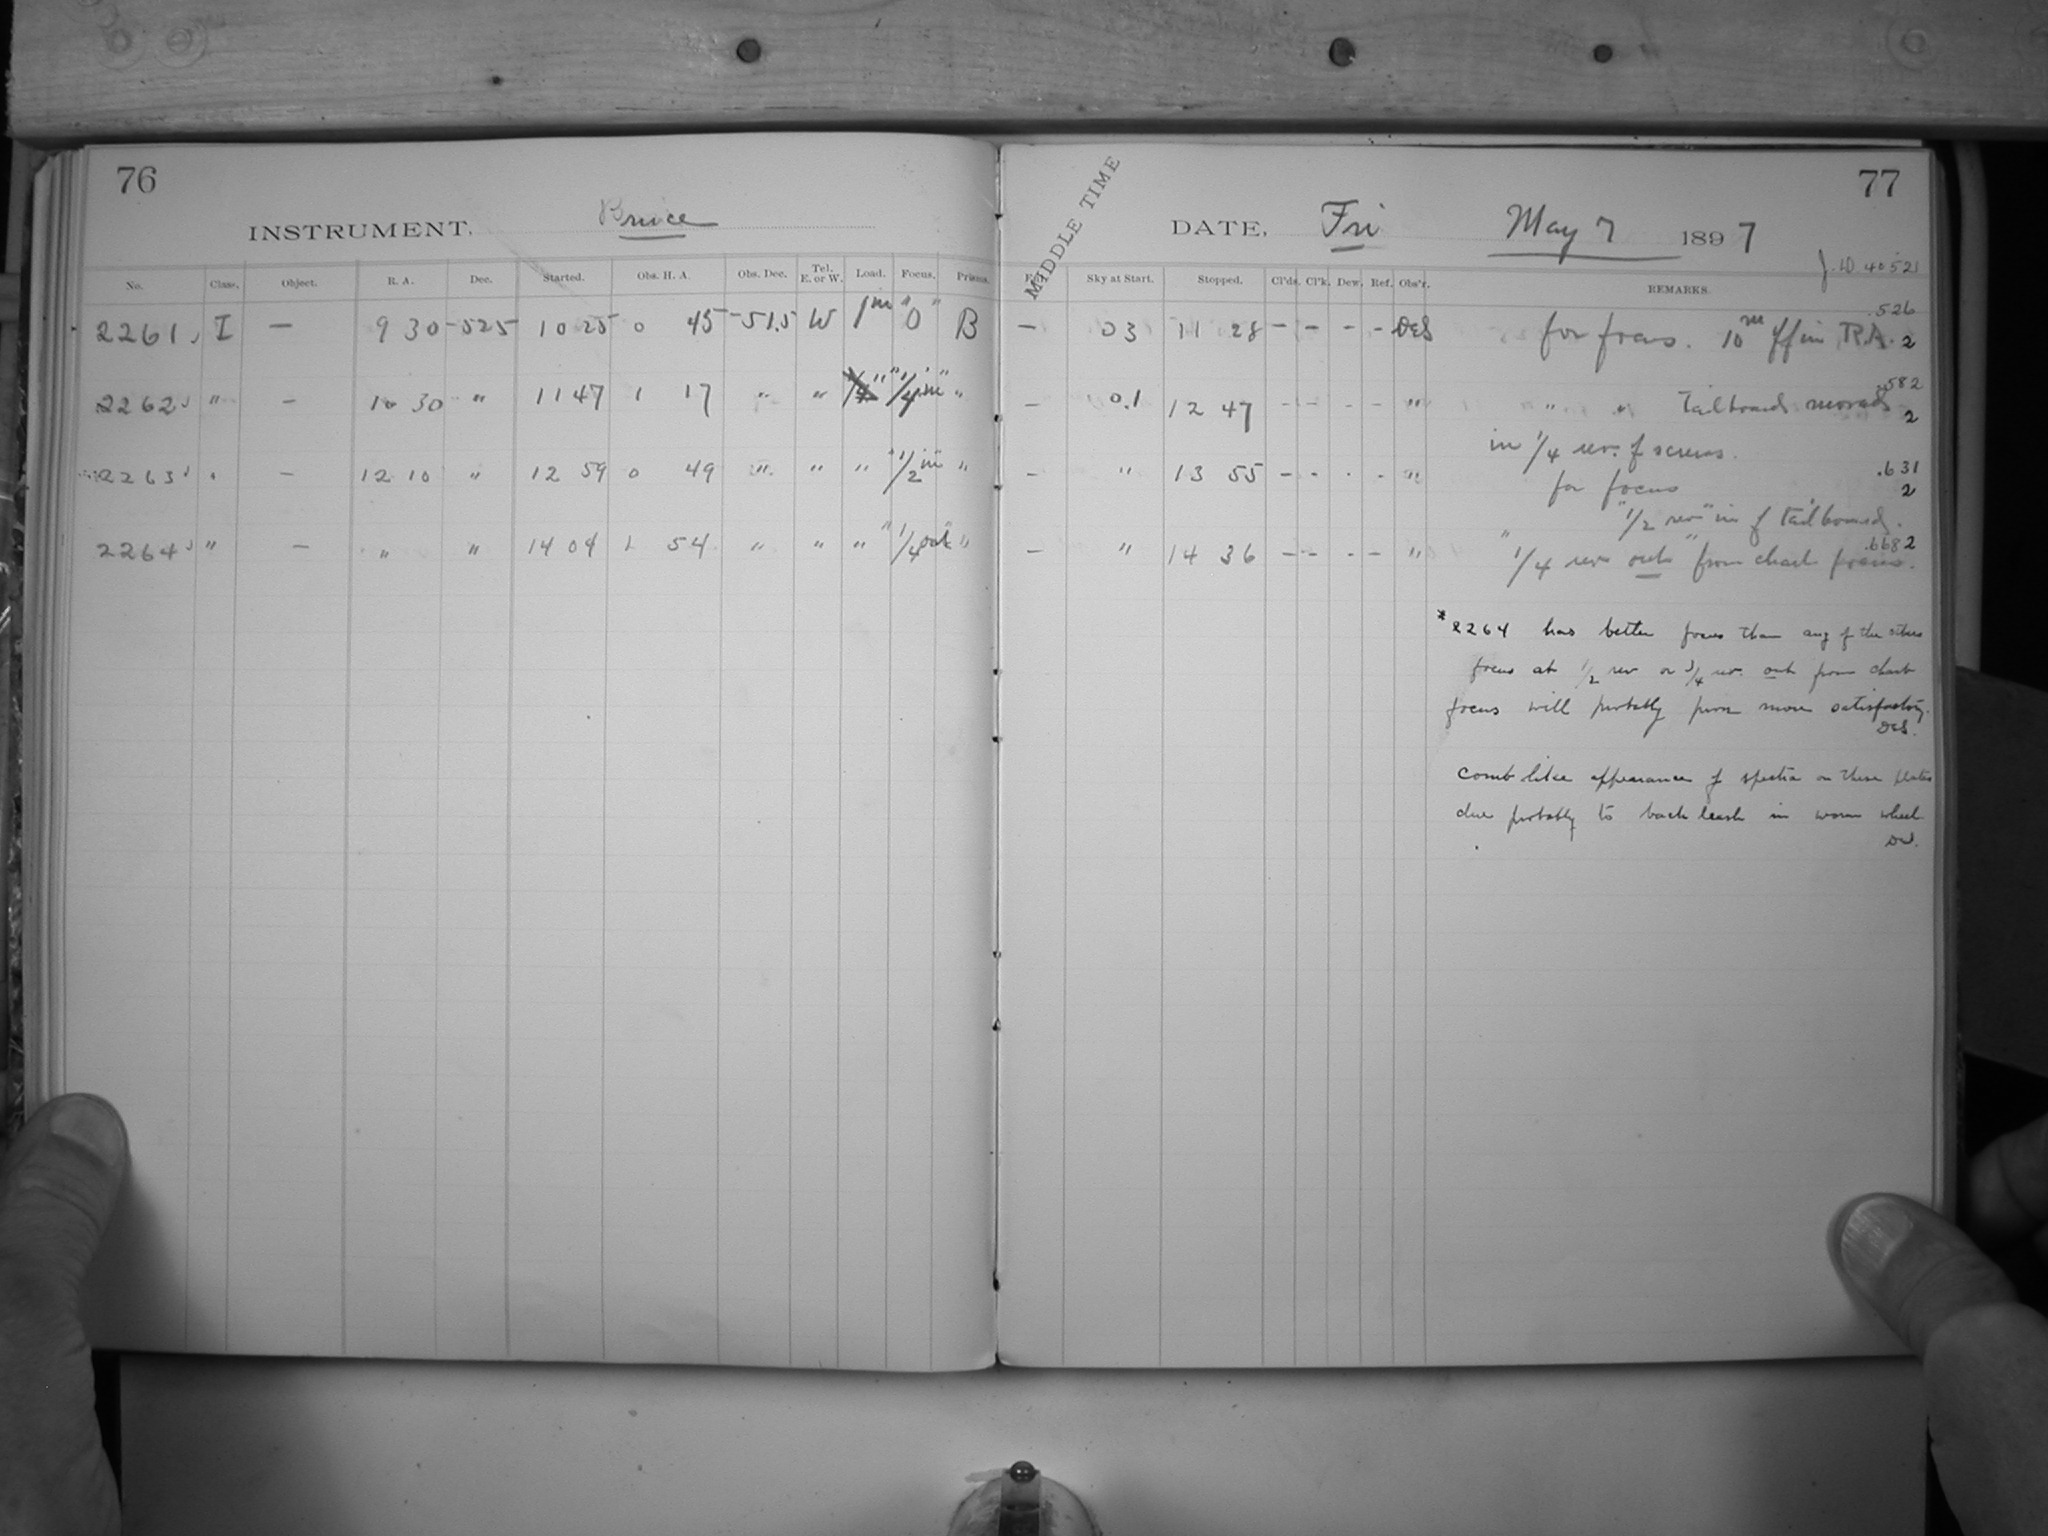 76
INSTRUMENT, Bruce
No. Class. Object. R. A. Dec. Started. Obs. H. A. Obs. Dec. Tel. E. or W. Load. Focus. Prisms.
2261 I — 9 30 -52.5 10 25 0 45 -51.5 W 1m "0" B
2262 " — 10 30 " 11 47 1 17 " " " "1/4 in" "
2263 " — 12 10 " 12 59 0 49 " " " "1/2 in" "
2264 " — " " 14 04 1 54 " " " "1/4 out" "
MIDDLE TIME
77
DATE, Fri May 7 1897
J.D. 40521
Sky at Start. Stopped. Cl'ds. Cl'k. Dew. Ref. Obs'r. REMARKS.
.526
— 03 11 28 - - - - DeS for focus. 10m ff in R.A. 2
.582
— 0.1 12 47 - - - - " " " Tailboard moved 2
in 1/4 rev. of screws.
— " 13 55 - - - - " for focus .631 2
"1/2 rev" in of tailboard.
— " 14 36 - - - - " " "1/4 rev out" from chart focus. .668 2
* 2264 has better focus than any of the others
focus at 1/2 rev or 3/4 rev. out from chart
focus will probably prove more satisfactory.
DeS.
Comb like appearance of spectra on these plates
due probably to back leash in worm wheel